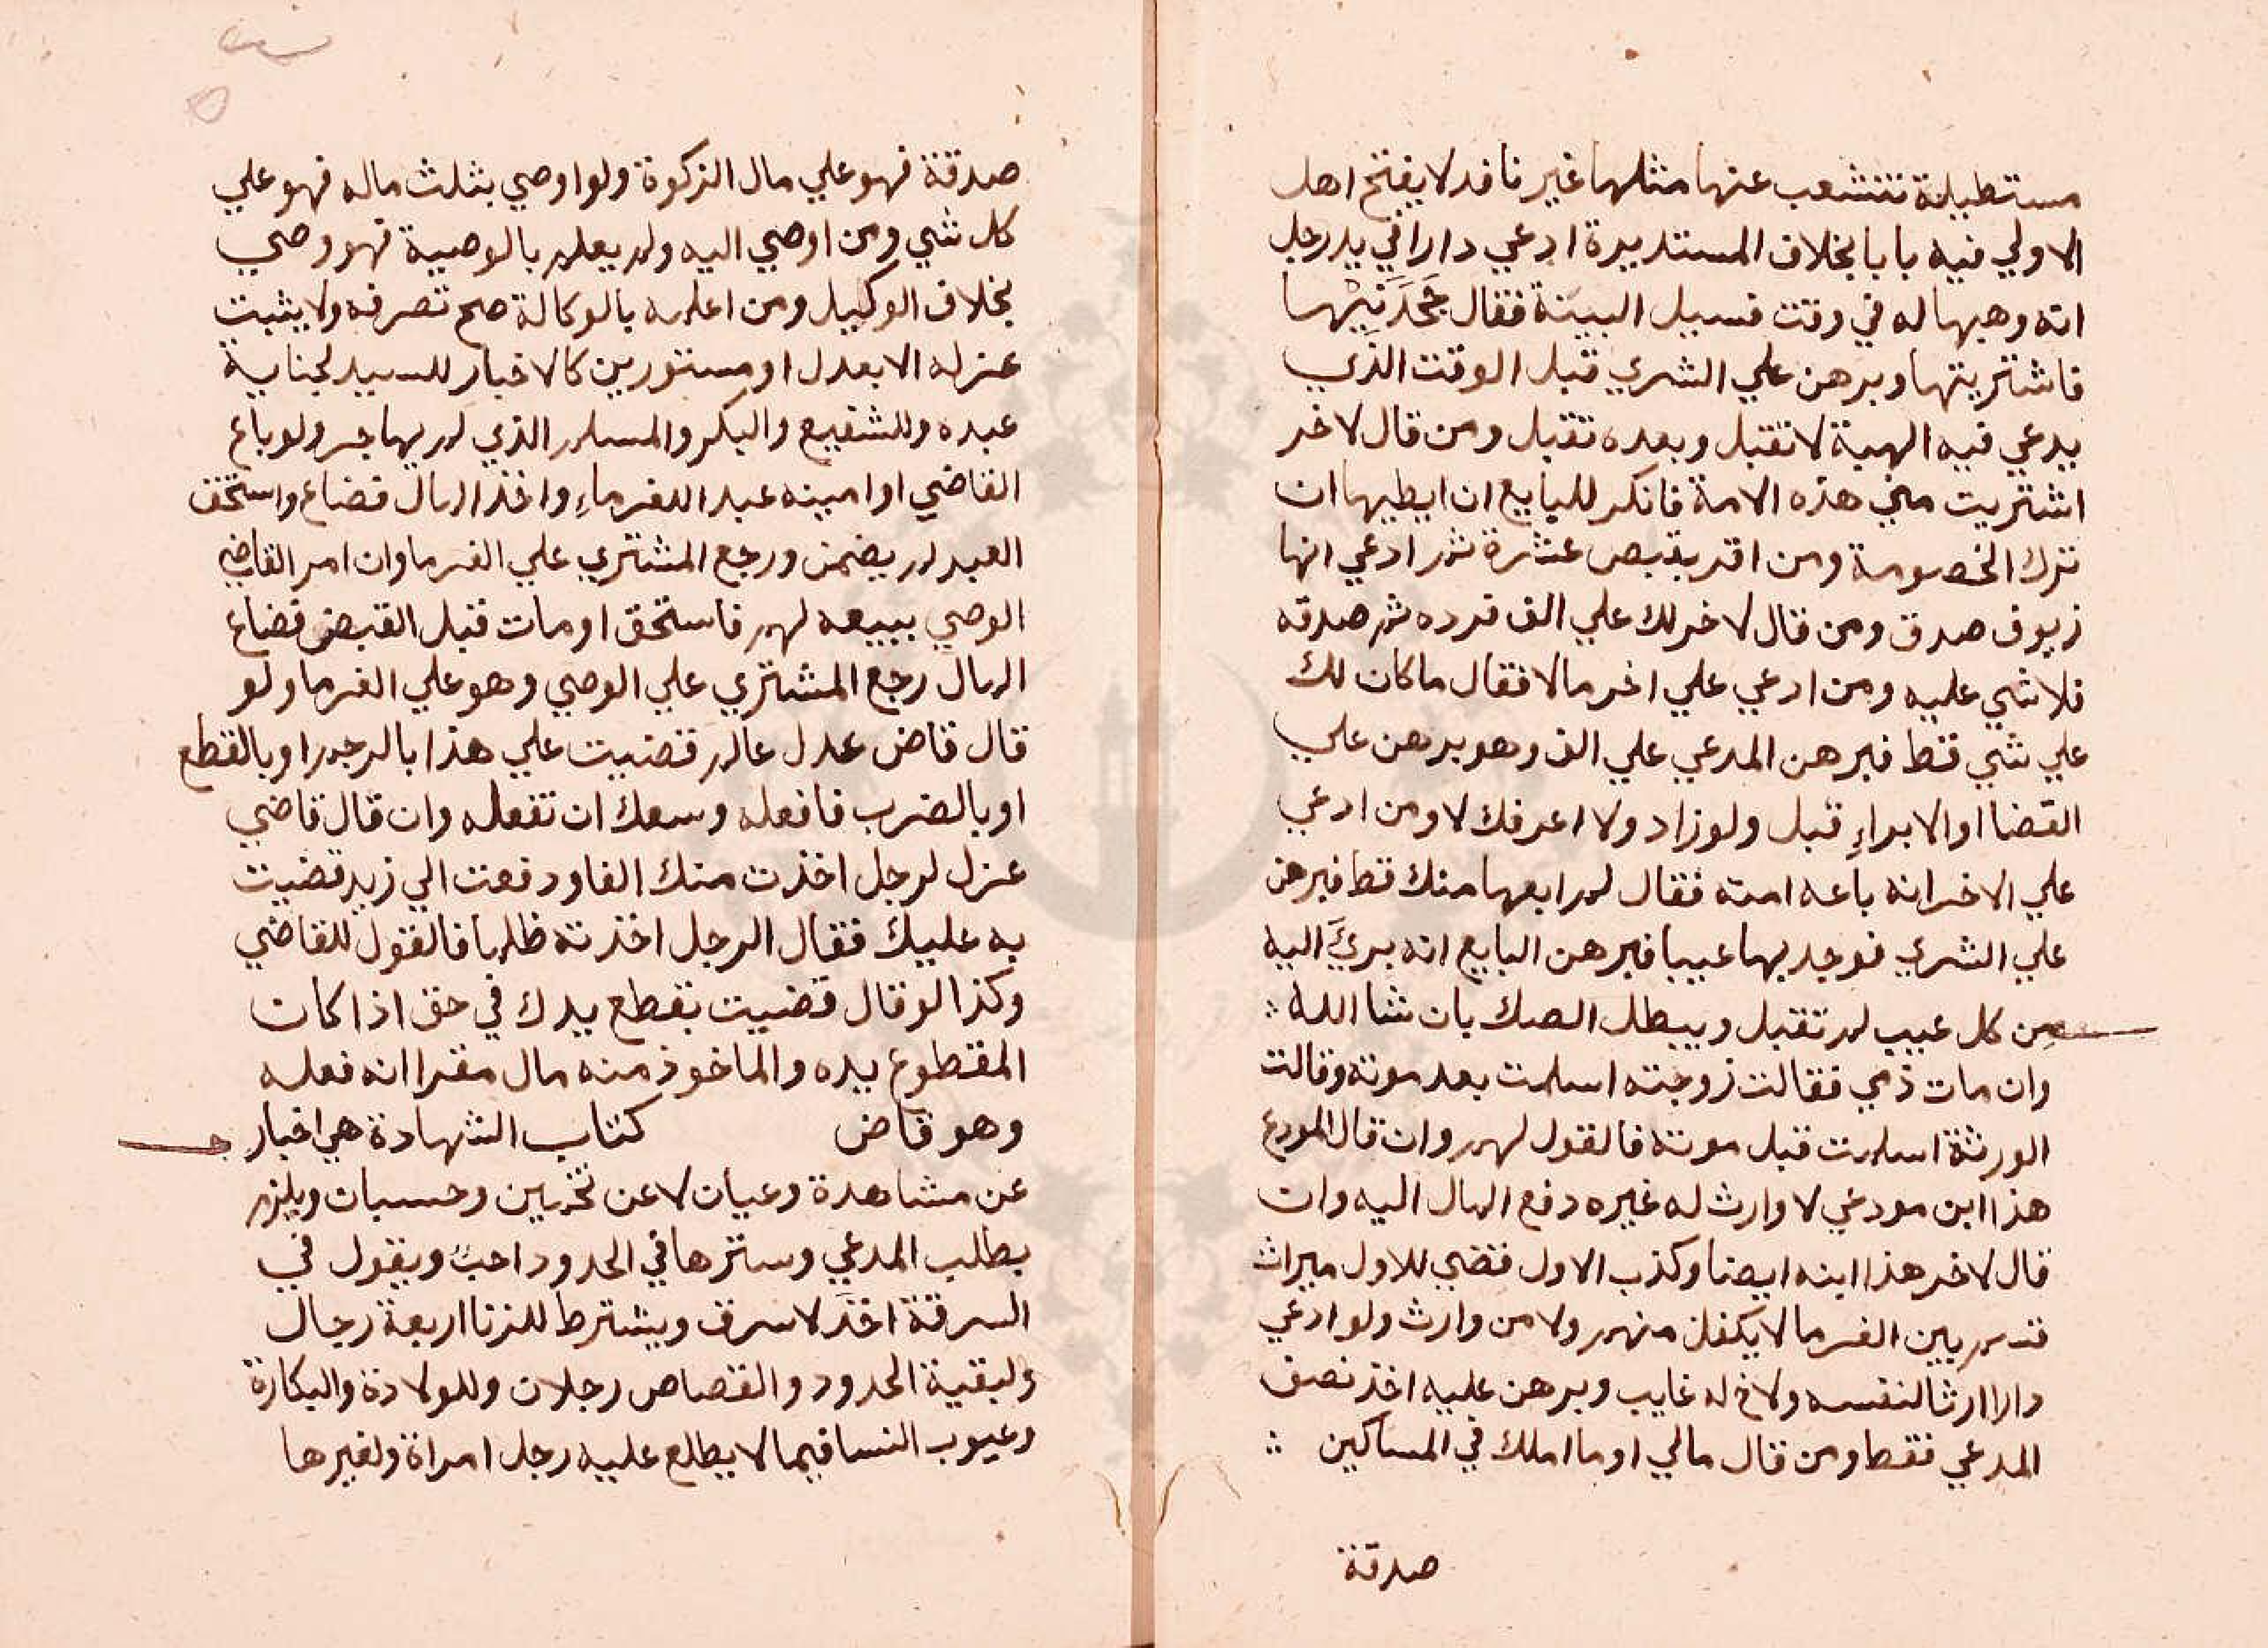 مستطيلة تتشعب عنها مثلها غير نافد لا يفتح اهل
الاولي فيه بابا بخلاف المستديرة ادعي دارا في يد رجل
انه وهبها له في وقت فسيل البينة فقال جحدنيها
فاشتريتها وبرهن علي الشري قبل الوقت الذي
يدعي فيه الهبة لا تقبل وبعده تقبل ومن قال لاخر
اشتريت مني هذه الامة فانكر للبايع ان ايطيها ان
ترك الخصومة ومن اقر بقبض عشرة ثم ادعي انها
زيوف صدق ومن قال لاخر لك علي الف فرده ثم صدقه
فلا شي عليه ومن ادعي علي اخر مالا فقال ما كان لك
علي شي قط فبرهن المدعي علي الف وهو برهن علي
القضا او الابراء قبل ولو زاد ولا اعرفك لا ومن ادعي
علي الاخر انه باعه امته فقال لم ابعها منك قط فبرهن
علي الشري فوجد بها عيبا فبرهن البايع انه بريَ اليه
من كل عيب لم تقبل ويبطل الصك بان شا الله
وان مات ذمي فقالت زوجته اسلمت بعد موته وقالت
الورثة اسلمت قبل موته فالقول لهم وان قال المودع
هذا ابن مودعي لا وارث له غيره دفع المال اليه وان
قال لاخر هذا ابنه ايضا وكذب الاول قضي للاول ميراث
قسم بين الغرما لا يكفل منهم ولا من وارث ولو ادعي
دارا ارثا لنفسه ولاخ له غايب وبرهن عليه اخذ نصف
المدعي فقط ومن قال مالي او ما املك في المساكين
صدقة
صدقة فهو علي مال الزكوة ولو اوصي بثلث ماله فهو علي
كل شي ومن اوصي اليه ولم يعلم بالوصية فهو وصي
بخلاف الوكيل ومن اعلمه بالوكالة صح تصرفه ولا يثبت
عزله الا بعدل او مستورين كالاخبار للسيد لجناية
عبده وللشفيع والبكر والمسلم الذي لم يهاجر ولو باع
القاضي او امينه عبد اللغرماء واخذ المال فضاع واستحق
العبد لم يضمن ورجع المشتري علي الغرما وان امر القاضي
الوصي ببيعه لهم فاستحق او مات قبل القبض فضاع
المال رجع المشتري علي الوصي وهو علي الغرما ولو
قال قاض عدل عالم قضيت علي هذا بالرجم او بالقطع
او بالضرب فافعله وسعك ان تفعله وان قال قاضي
عزل لرجل اخذت منك الفا ودفعت الي زيد قضيت
به عليك فقال الرجل اخذته ظلما فالقول للقاضي
وكذا لو قال قضيت بقطع يدك في حق اذا كان
المقطوع يده والماخوذ منه مال مقرا انه فعله
وهو قاض كتاب الشهادة هي اخبار
عن مشاهدة وعيان لا عن تخمين وحسبان ويلزم
بطلب المدعي وسترها في الحدود احب ويقول في
السرقة اخذ لا سرق ويشترط للزنا اربعة رجال
ولبقية الحدود والقصاص رجلان وللولادة والبكارة
وعيوب النسا فيما لا يطلع عليه رجل امراة ولغيرها